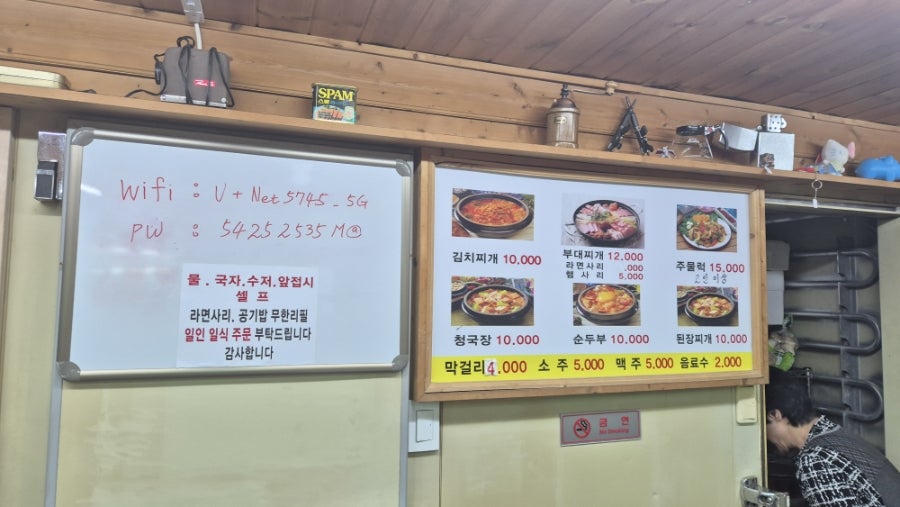 SPAM
스팸
Wifi : U + Net 5745 - 5G
PW : 54252535 M@
물. 국자. 수저. 앞접시
셀 프
라면사리. 공기밥 무한리필
일인 일식 주문 부탁드립니다
감사합니다
김치찌개 10,000
부대찌개 12,000
라면사리 .000
햄사리 5,000
주물럭 15,000
2인 이상
청국장 10,000
순두부 10,000
된장찌개 10,000
막걸리 4.000 소 주 5,000 맥 주 5,000 음료수 2,000
금 연
No Smoking